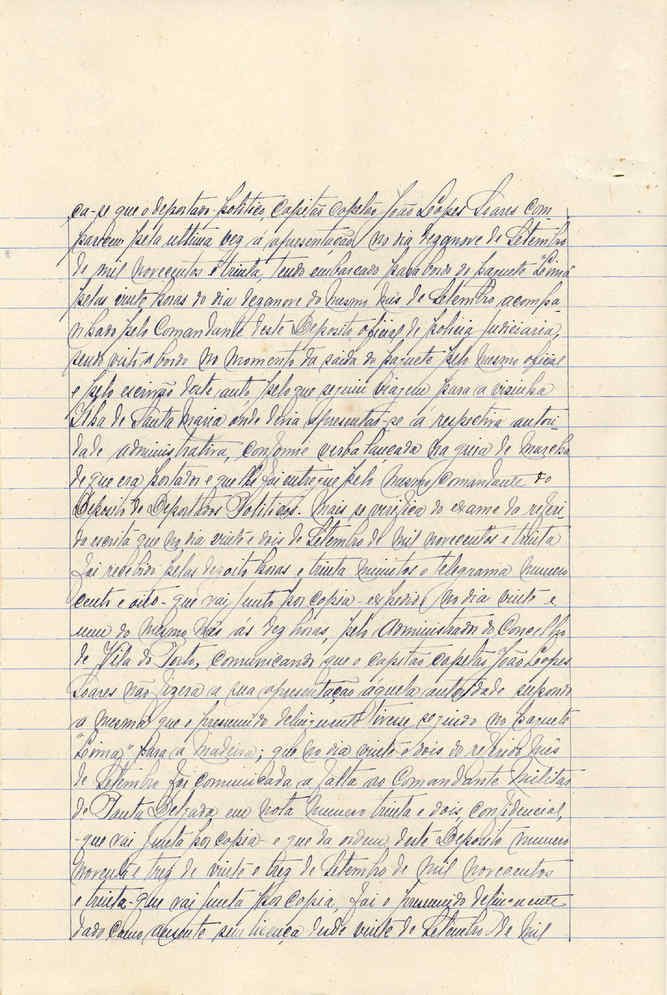 ca-se que o deportado politico, Capitão capelão João Lopes Soares com
pareceu pela ultima vez á apresentação no dia dezanove de Setembro
de mil novecentos e trinta, tendo embarcado para bordo do paquete "Lima"
pelas vinte horas do dia dezanove do mesmo mês de Setembro acompa
nhado pelo Comandante deste Deposito oficial de policia judiciaria,
sendo visto a bordo no momento da saida do paquete pelo mesmo oficial
e pelo escrivão deste auto, pelo que seguiu viagem para a visinha
Ilha de Santa Maria onde devia apresentar-se á respectiva autori
dade administrativa, conforme verba lançada na guia de marcha
de que era portador e que lhe foi entregue pelo mesmo Comandante do
Deposito de Deportados Politicos. Mais se verifica do exame da referi
da escrita que no dia vinte e dois de Setembro de mil novecentos e trinta
foi recebido pelas dezoito horas e trinta minutos o telegrama numero
cento e oito - que vai junto por copia - expedido no dia vinte e
um do mesmo mês ás dez horas, pelo Administrador do Concelho
de Vila do Porto, comunicando que o capitão capelão João Lopes
Soares não fizera a sua apresentação áquela autoridade supondo
a mesma que o presumido delinquente tivesse seguido no paquete
"Lima" para a Madeira; que no dia vinte e dois do referido mês
de Setembro foi comunicada a falta ao Comandante Militar
de Ponta Delgada em nota numero trinta e dois, confidencial,
- que vai junta por copia - e que da ordem deste Deposito numero
noventa e trez de vinte e trez de Setembro de mil novecentos
e trinta - que vai junta por copia, foi o presumido delinquente
dado como ausente sem licença desde vinte de Setembro de mil